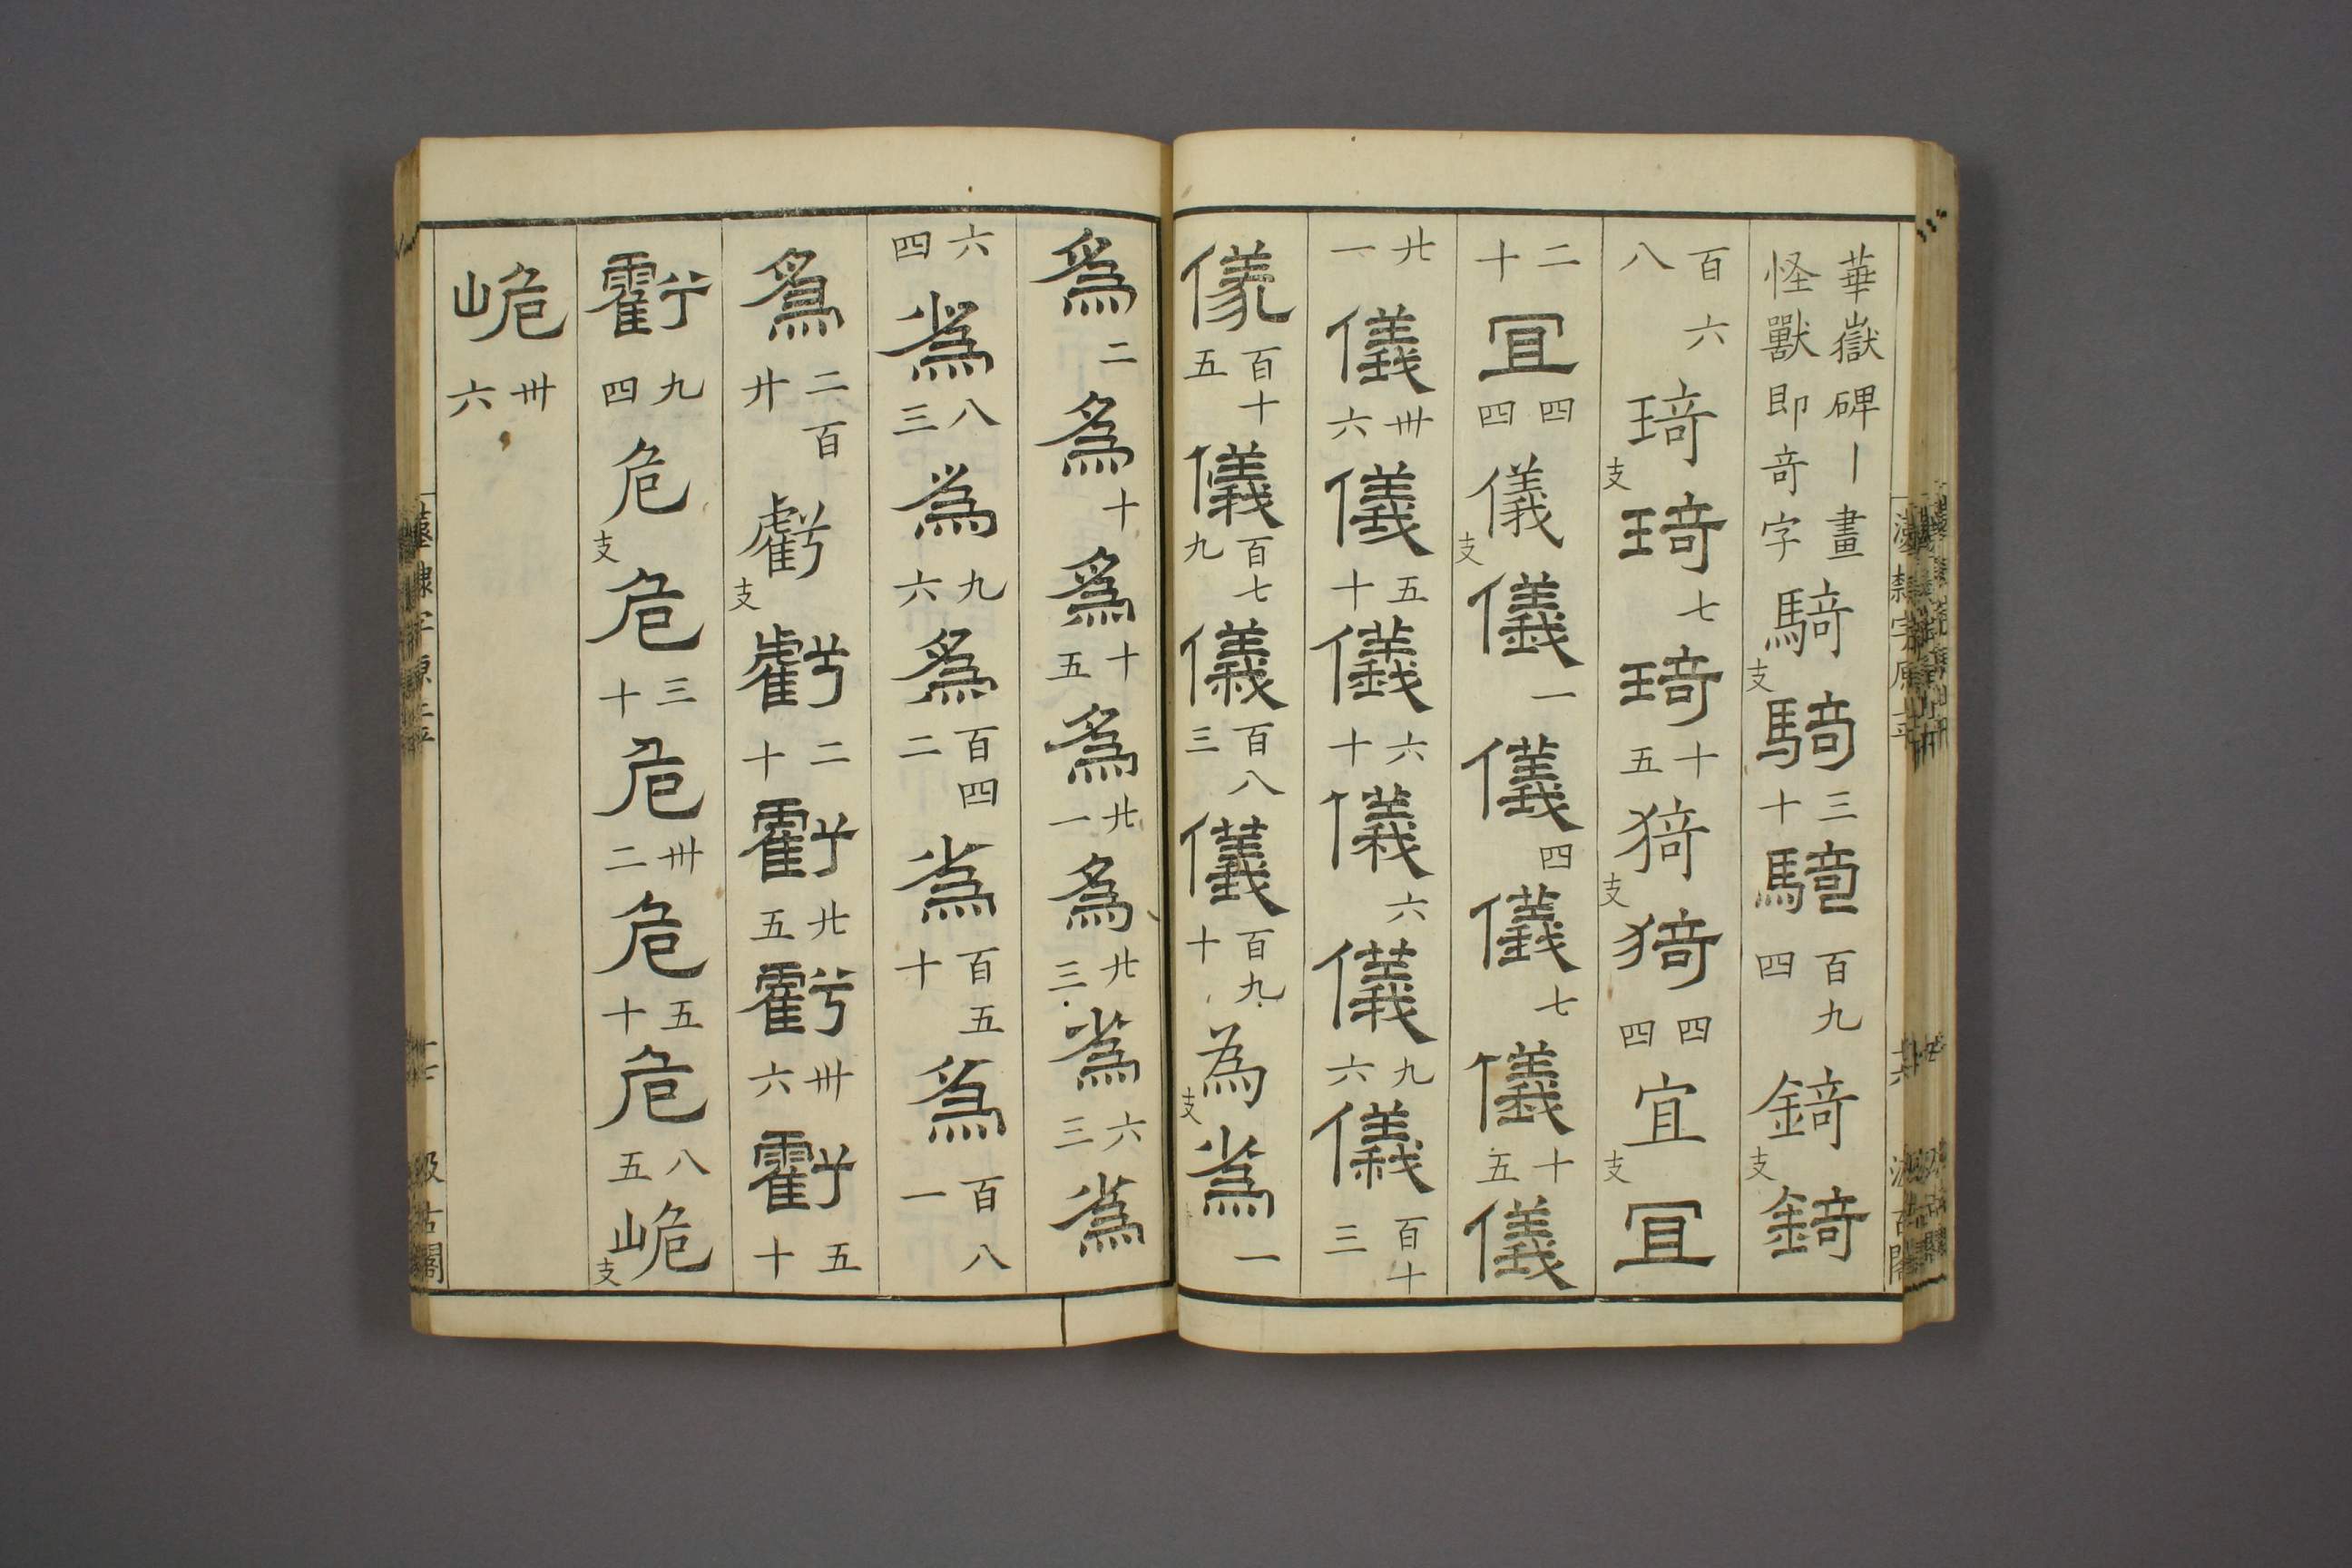 華嶽碑丨畫怪獸即竒字騎支騎三十騎百九四錡支錡
百六八琦支琦七琦十五猗支猗四四宜支冝
二十冝四四儀支儀一儀四儀七儀十五儀
廿一儀卅六儀五十儀六十儀六儀九六儀百十三
儀百十五儀百七九儀百八三儀百九十為支爲一
爲二爲十爲十五爲廿一爲廿三爲六三爲
六四爲八三爲九六爲百四二爲百五十爲百八一
爲二百廿虧支虧二十虧廿五虧卅六虧五十
虧九四危支危三十危卅二危五十危八五峗支
峗卅六
隸字原
汲古閣